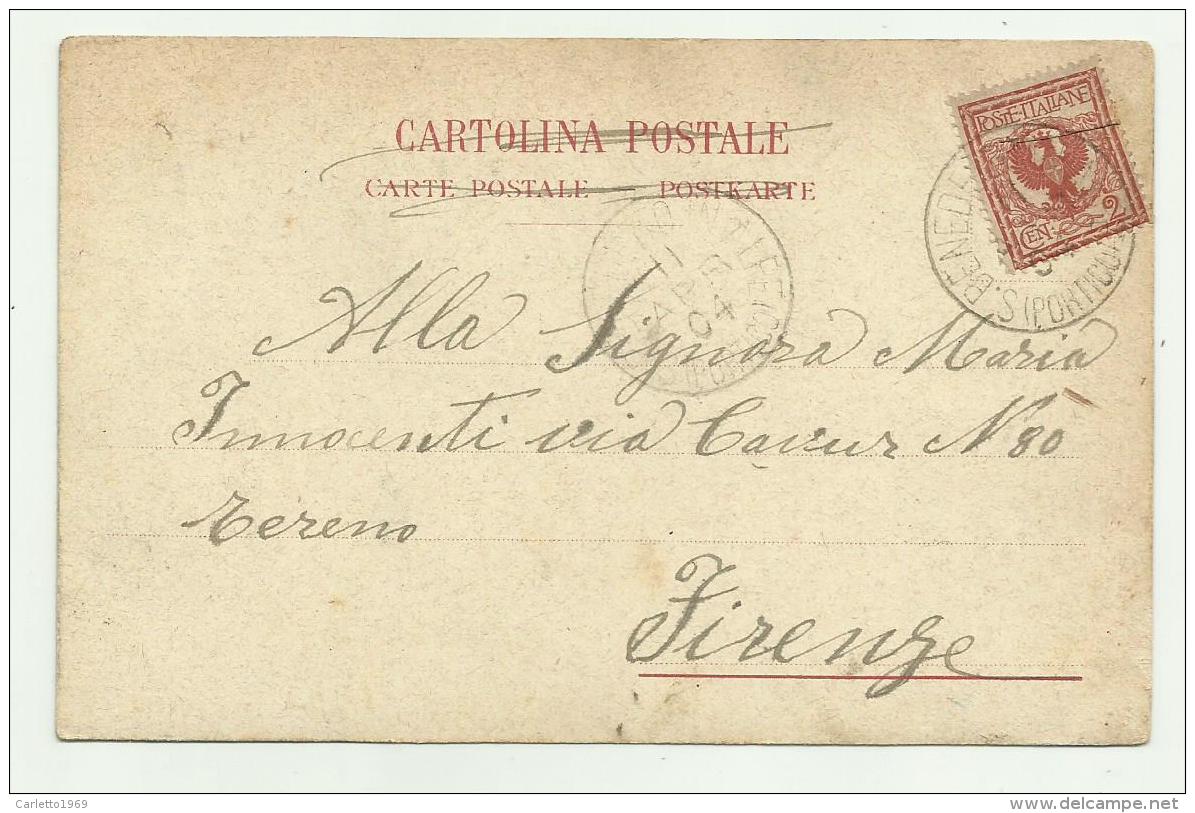 CARTOLINA POSTALE
CARTE POSTALE — POSTKARTE
POSTE·ITALIANE
CENT. 2
S. BENEDE
S (PORTICO
04
Alla Signora Maria
Innocenti via Cavur N 80
tereno
Firenze
Carletto1969
delcampe.net